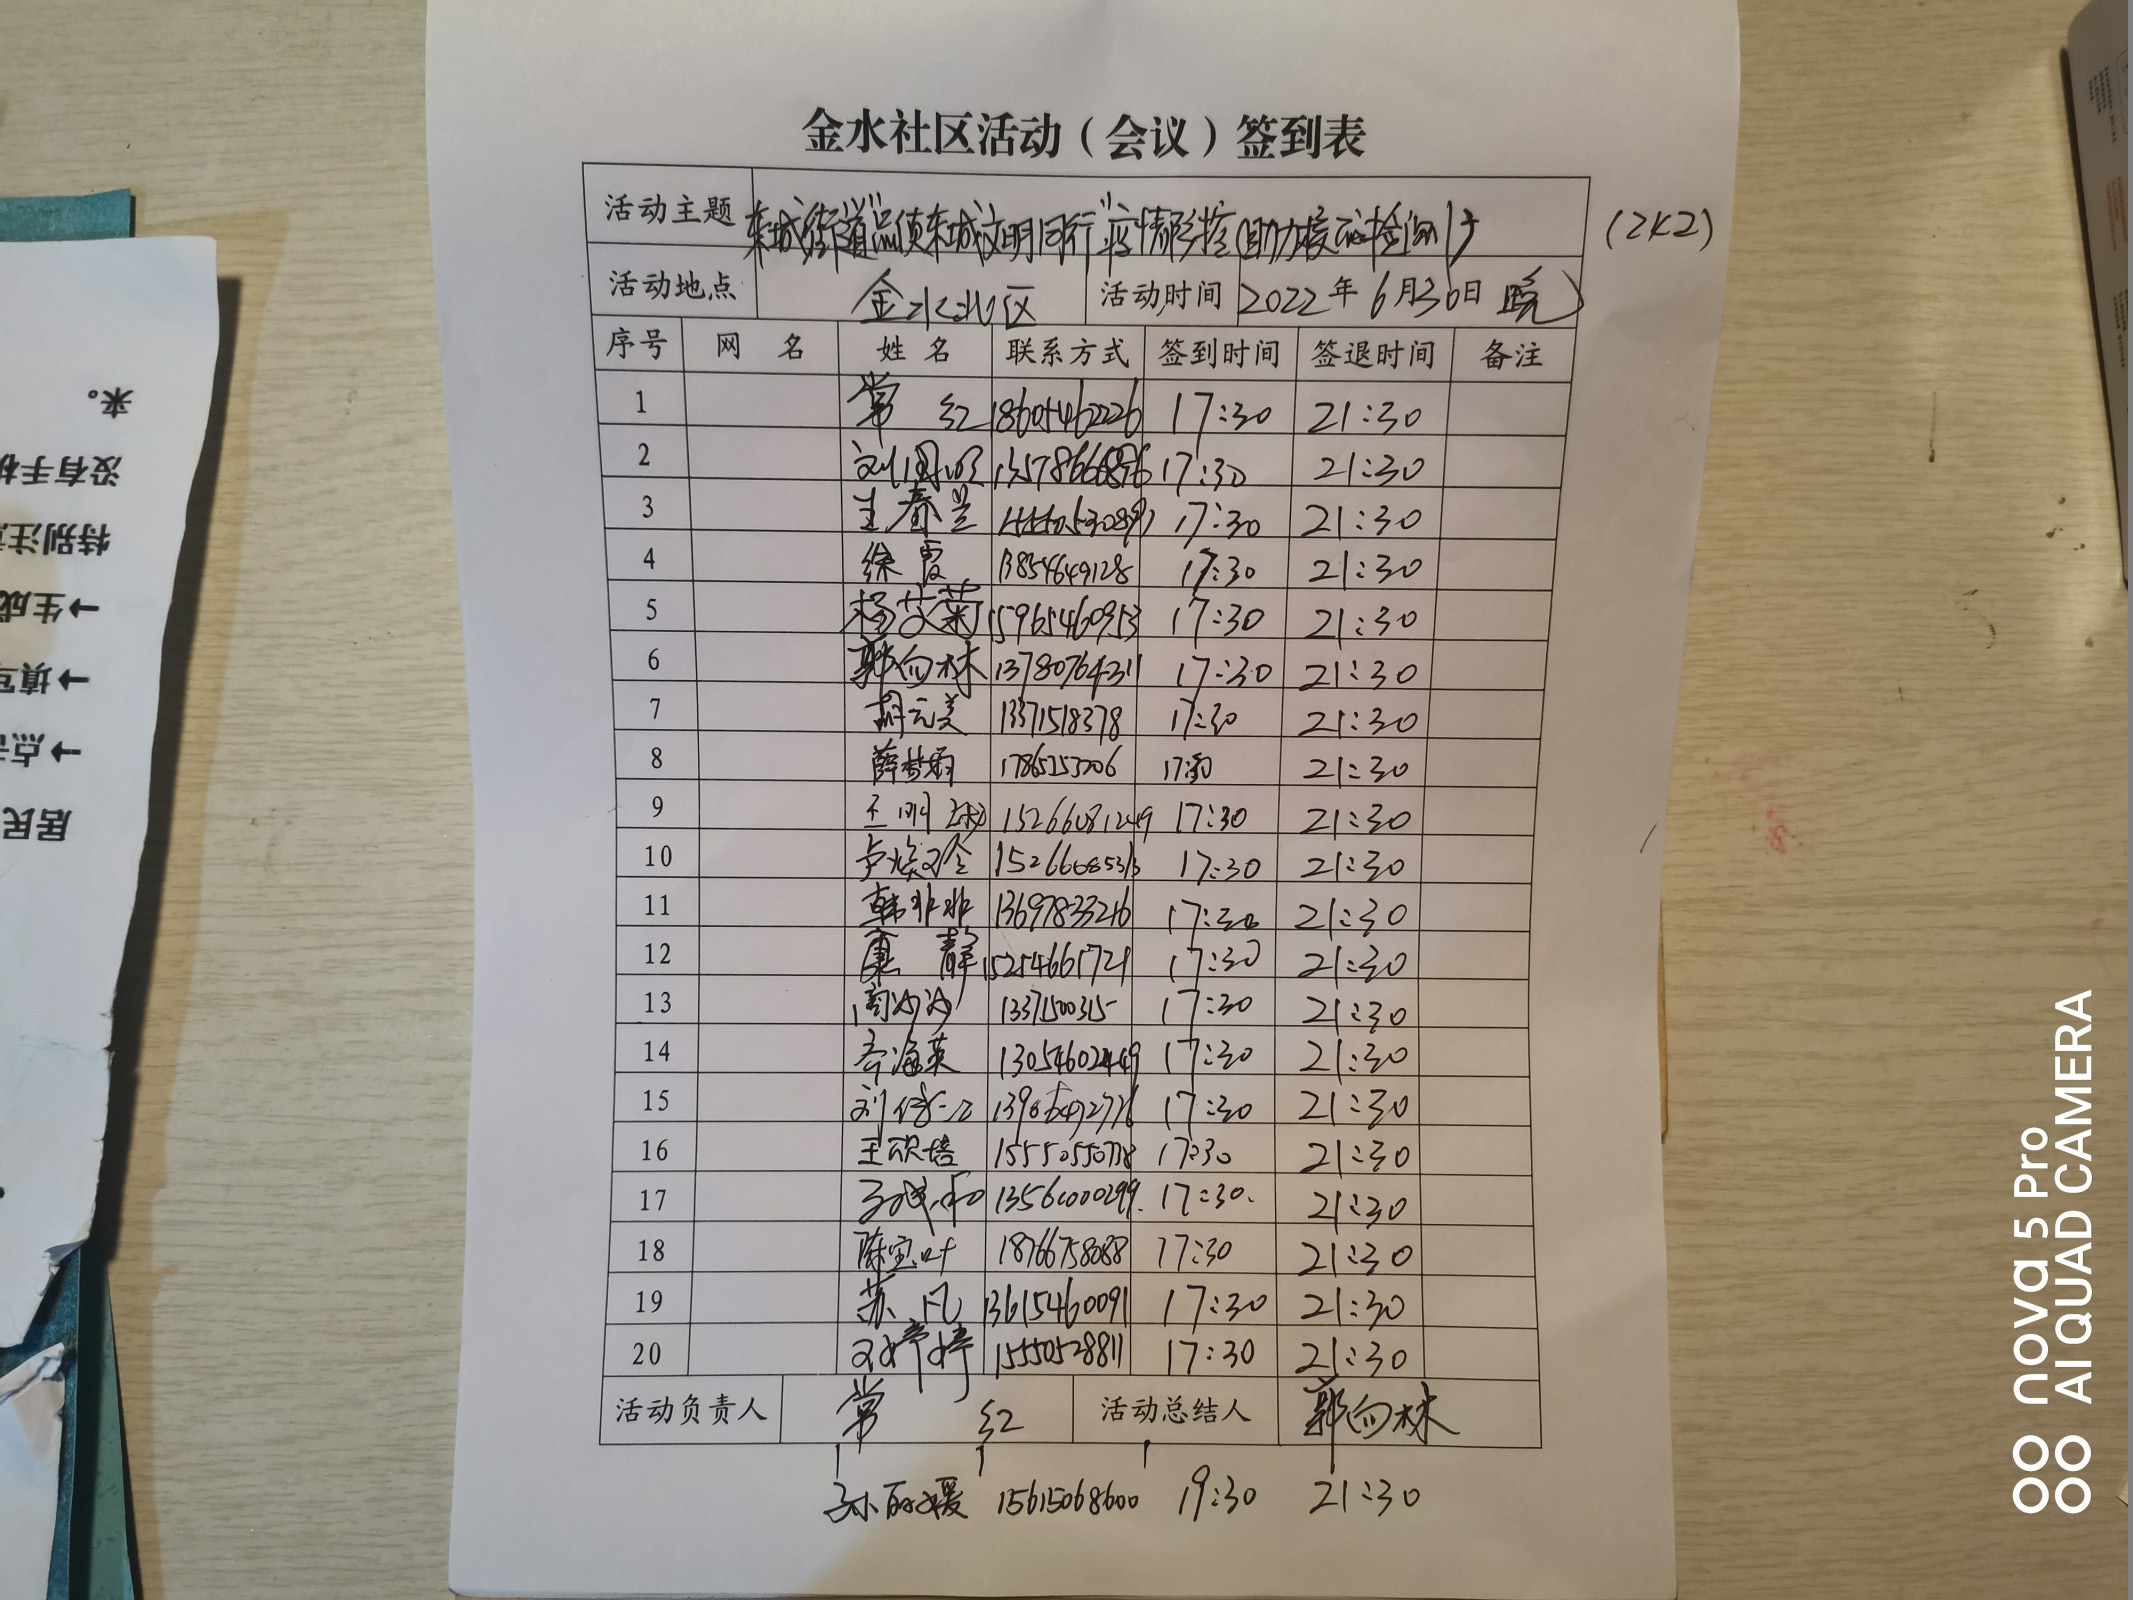 金水社区活动（会议）签到表
活动主题 东城街道"品质东城文明同行"疫情防控（助力核酸检测） (2K2)
活动地点 金水北区 活动时间 2022年6月30日 晚
序号 网 名 姓 名 联系方式 签到时间 签退时间 备注
1 常 红 17:30 21:30
2 17:30 21:30
3 王春兰 17:30 21:30
4 徐霞 13854649128 17:30 21:30
5 杨艾菊 15965460953 17:30 21:30
6 郭向林 13780764311 17:30 21:30
7 胡元美 13371518378 17:30 21:30
8 薛梦雨 17865253206 17:30 21:30
9 王明 15266081249 17:30 21:30
10 17:30 21:30
11 韩非非 13697833216 17:30 21:30
12 康 静 15254661721 17:30 21:30
13 周沙沙 13371500315 17:30 21:30
14 齐海英 13054602449 17:30 21:30
15 17:30 21:30
16 15550550738 17:30 21:30
17 13561000299. 17:30. 21:30
18 陈宝叶 18766758088 17:30 21:30
19 苏凡 13615460091 17:30 21:30
20 邓婷婷 15550528811 17:30 21:30
活动负责人 常 红 活动总结人 郭向林
孙丽媛 15615068600 19:30 21:30
来。
没有手机
特别注意
→生成
→填写
→点击
居民
nova 5 Pro
AI QUAD CAMERA